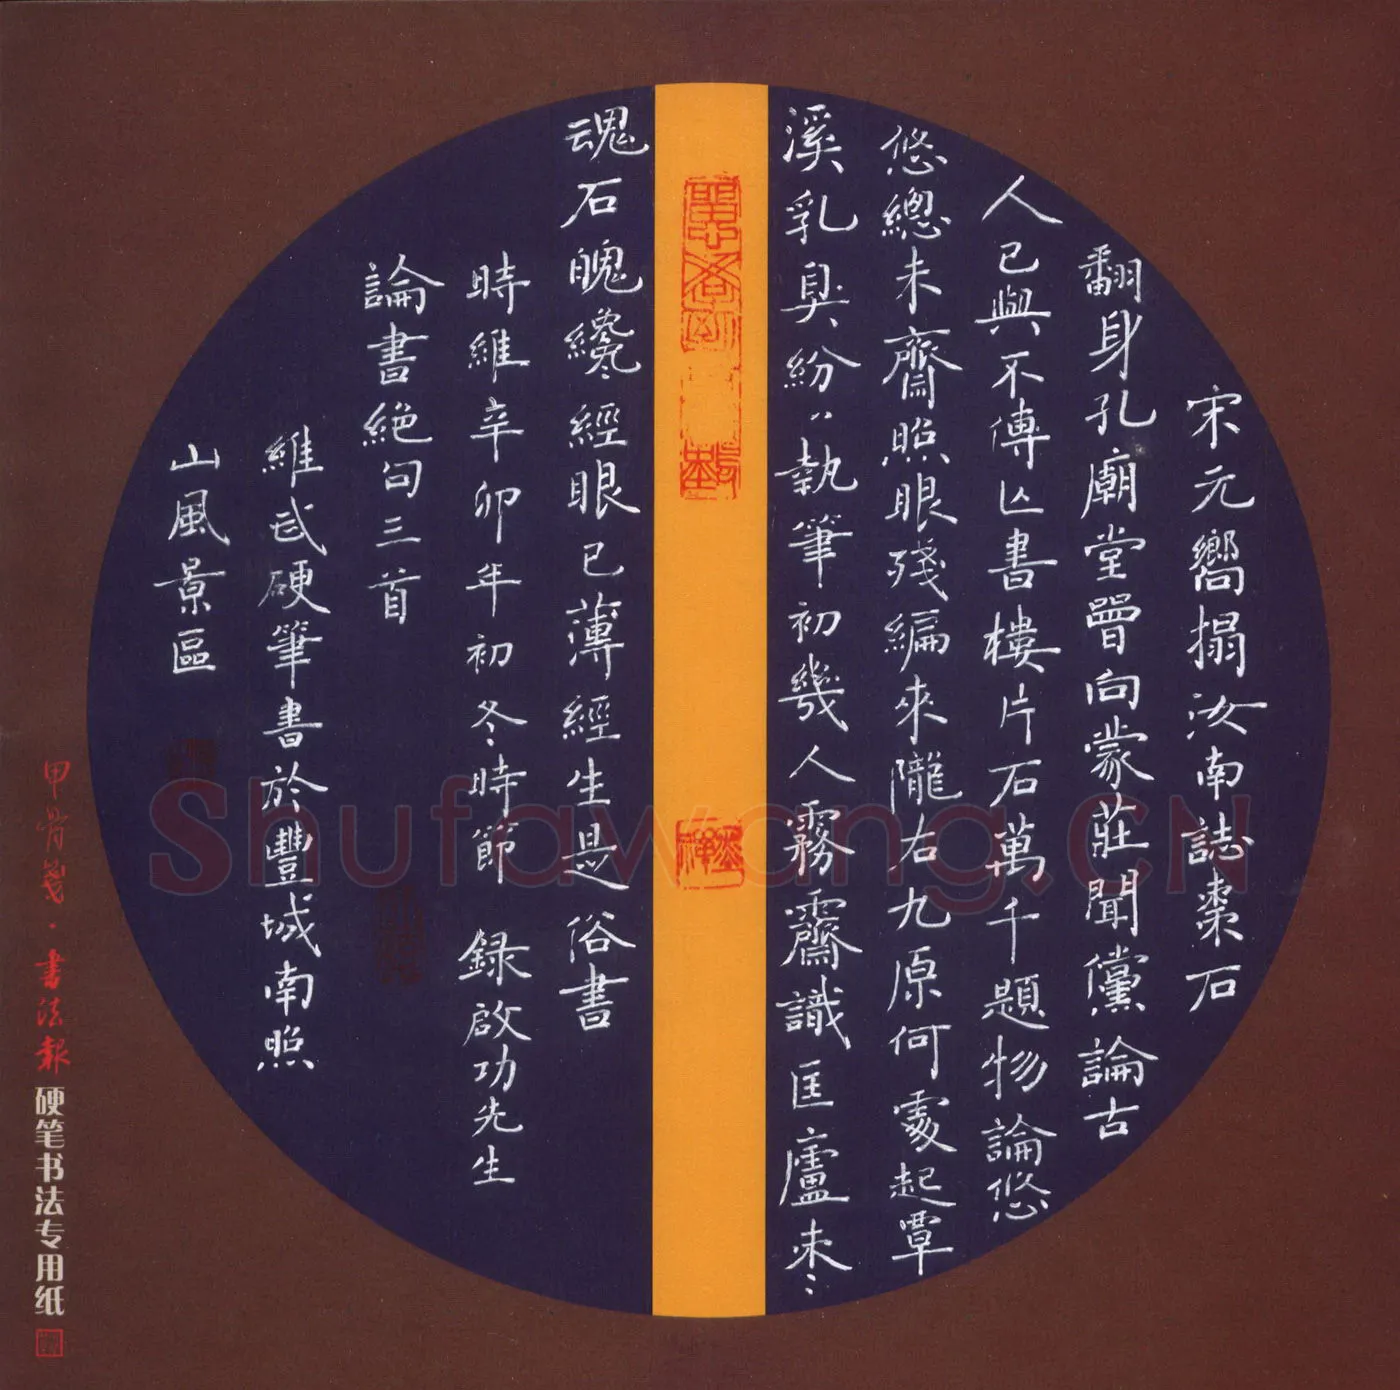 宋元嚮搨汝南誌棗石
翻身孔廟堂曾向蒙莊聞儻論古
人已與不傳亾書樓片石萬千題物論悠
悠總未齋照眼殘編來隴右九原何處起覃
溪乳臭紛〻執筆初幾人霧霽識匡廬枣〻
魂石魄纔經眼已薄經生是俗書
時維辛卯年初冬時節 錄啟功先生
論書絕句三首
維武硬筆書於豐城南照
山風景區
甲骨笺·書法報
硬笔书法专用纸
Shufawang.CN